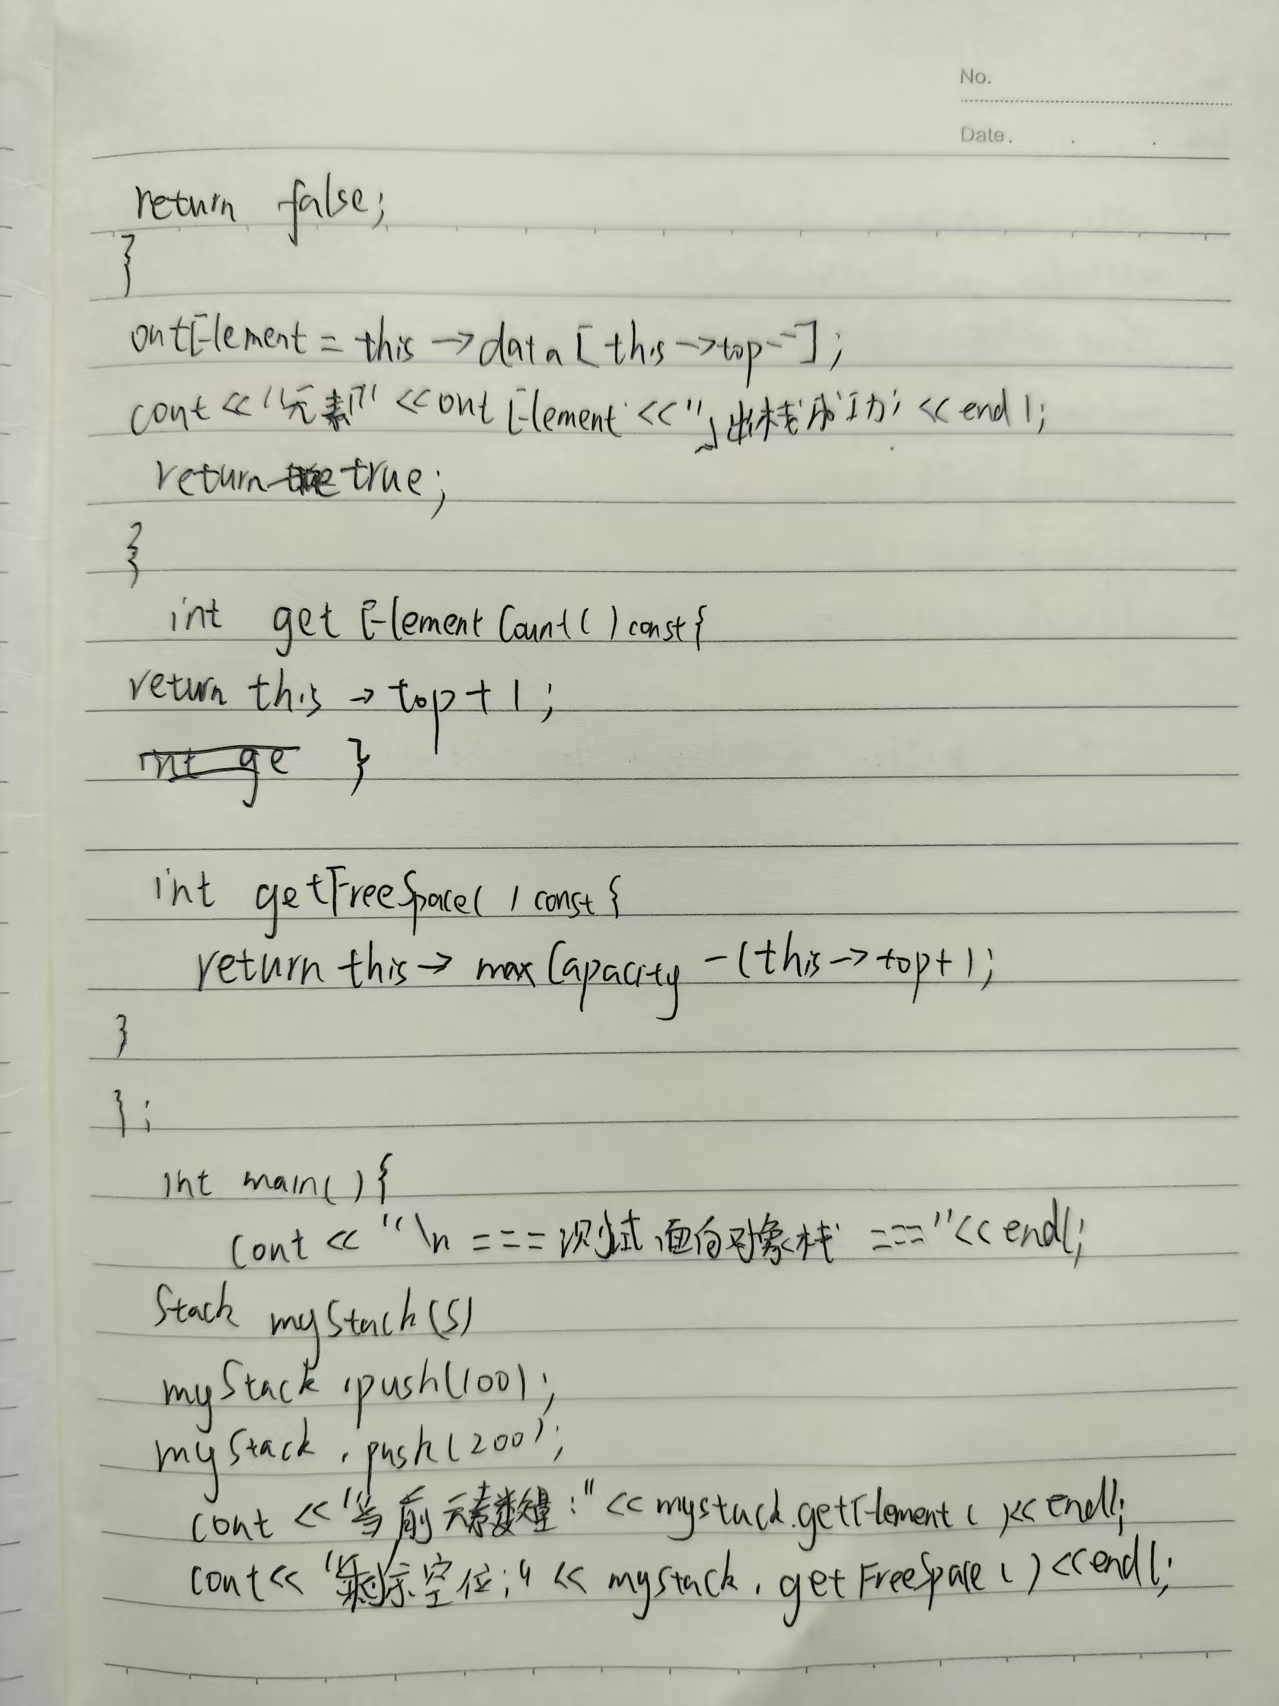 No.
Date.
return false;
}
outElement = this->data[this->top--];
cout<<"元素「"<<outElement<<"」出栈成功"<<endl;
return true;
}
int getElementCount()const{
return this->top+1;
int ge }
int getFreeSpace()const{
return this->maxCapacity-(this->top+1;
}
};
int main(){
cout<<"\n===测试面向对象栈==="<<endl;
Stack myStack(5)
myStack.push(100);
myStack.push(200);
cout<<"当前元素数量:"<<mystack.getElement()<<endl;
cout<<"剩余空位:"<<mystack.getFreeSpace()<<endl;